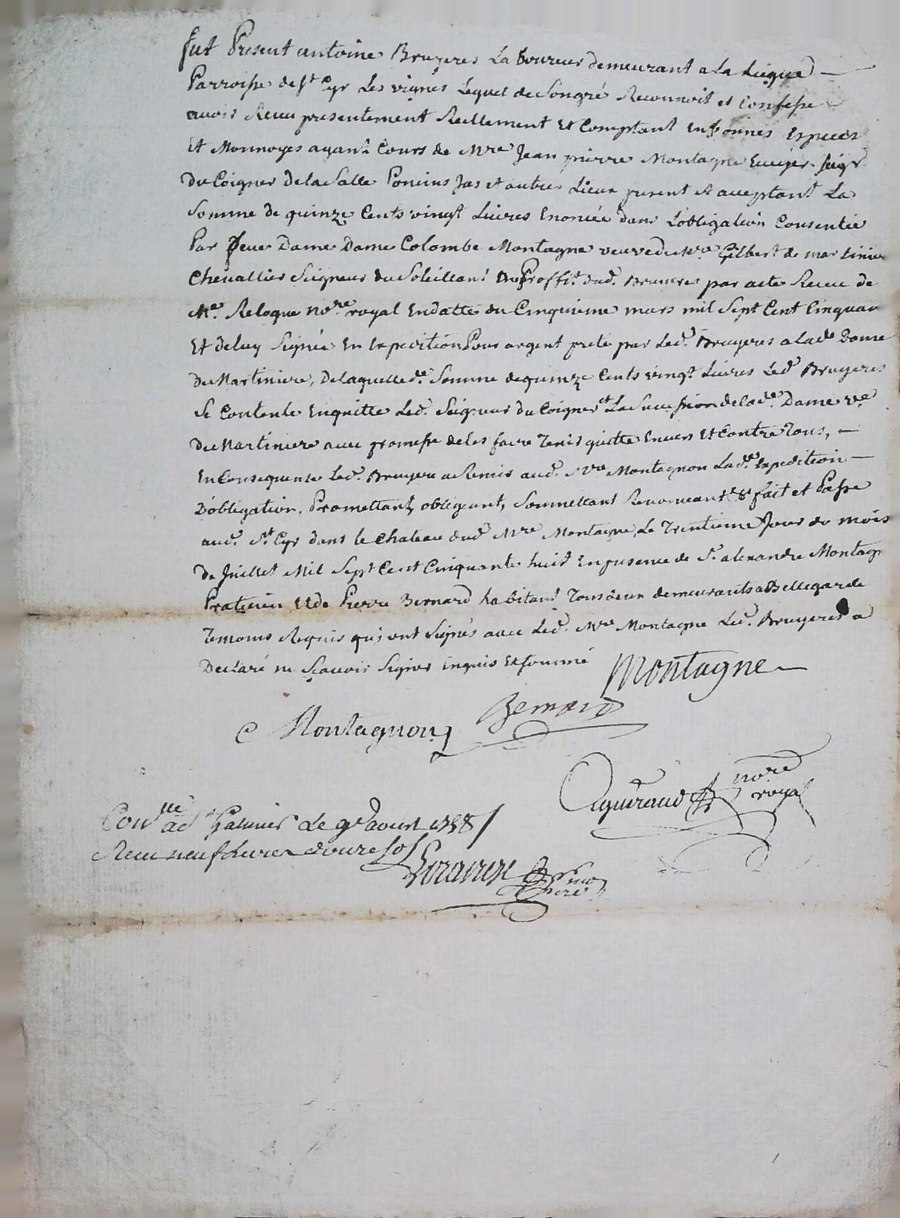 fut Present antoine Bruyeres Laboureur demeurant a La Liegue —
Parroisse de st Cyr Les vignes Lequel de Son gré Reconnoit et Confesse
avoir Receu presentement Reellement Et Comptant En bonnes Especes
Et Monnoyes ayant Cours de Mre Jean pierre Montagne Ecuyer Seigr
Du Poigner De la Salle Poncins Jas et autres Lieux present et acceptant La
Somme de quinze Cents vingt Livres Enoncée dans L'obligation Consentie
Par feue Dame Dame Colombe Montagne veuve de Mre Gilbert de martinière
Chevallier Seigneur du Soleillant Du Proffit dud. Bruyere par acte Receu de
Me. Reloque nore royal En datte du Cinquieme mars mil Sept Cent Cinquan
Et de luy Signée En Expedition Pour argent preté par Led. Bruyeres a lade Dame
De Martiniere, De laquelle de. Somme de quinze Cents vingt Livres Led Bruyeres
Se Contente En quitte Led. Seigneur du Poigner et La Succession de lade. Dame ve.
De Martiniere avec promesse de les faire Tenir quitte Envers Et Contre Tous, —
En Consequence Led. Bruyere a Remis aud. Mre Montagnon Lade. Expedition —
D'obligation. Promettant, obligeant, Soumettant Renonceant & fait et Passé
aud. St Cyr dans le Chateau dud. Mre Montagne, Le Trentieme Jour du mois
De Juillet Mil Sept Cent Cinquante huit En presence de Sr. alexandre Montagn
Praticien Et de Pierre Bernard habitant Tous deux demeurants a Bellegarde
Temoins Requis qui ont Signés avec Led. Mre Montagne Led. Bruyeres a
Declaré ne Sçavoir Signer Enquis Et Sommé
Montagne
Bernard
Montagnon
nore
royal
Conlle a St Galmier Le 9e aout 1758
Receu neuf Livres douze sols